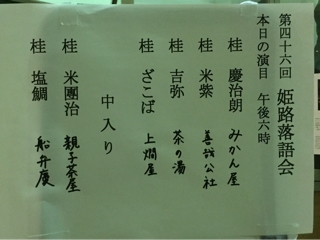 第四十六回 姫路落語会
本日の演目 午後六時
桂 慶治朗 みかん屋
桂 米紫 善哉公社
桂 吉弥 茶の湯
桂 ざこば 上燗屋
中入り
桂 米團治 親子茶屋
桂 塩鯛 船弁慶